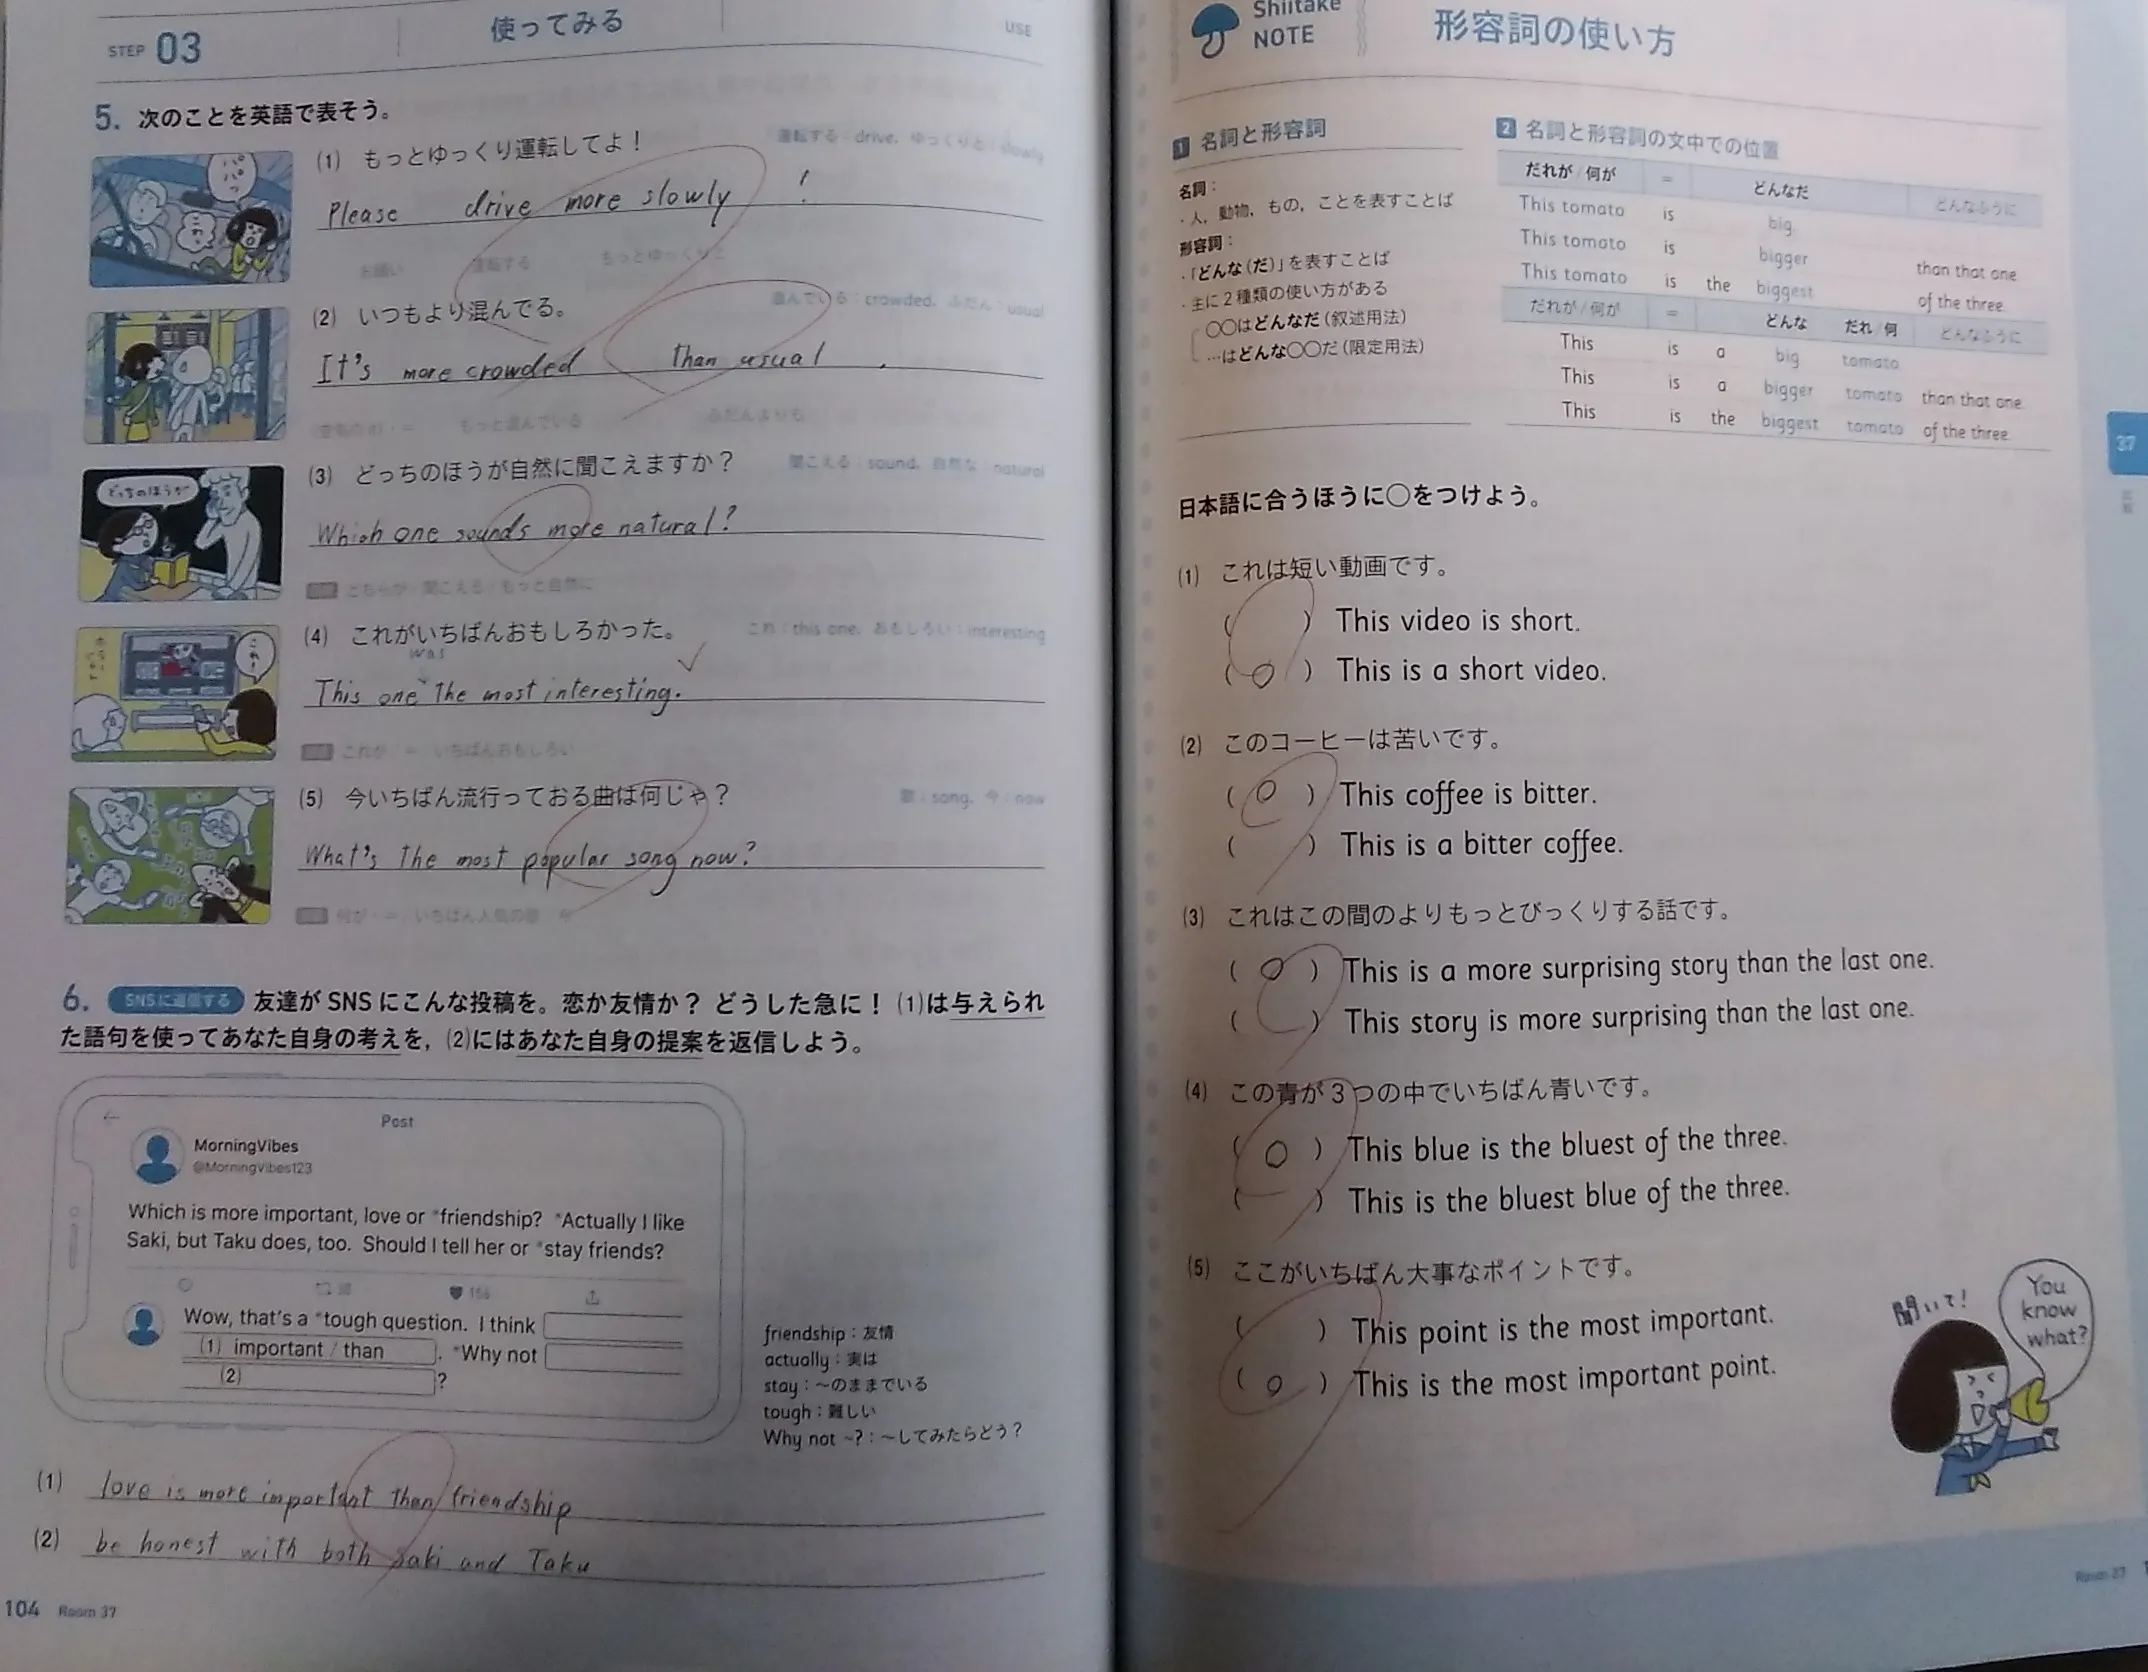 STEP 03 使ってみる USE
5. 次のことを英語で表そう。
(1) もっとゆっくり運転してよ！ 運転する：drive, ゆっくりと：slowly
パパっ
こわい
Please drive more slowly !
お願い 運転する もっとゆっくりと
(2) いつもより混んでる。 混んでいる：crowded, ふだん：usual
It's more crowded than usual .
もっと混んでいる ふだんよりも
(3) どっちのほうが自然に聞こえますか？ 聞こえる：sound, 自然な：natural
どっちのほうが
Which one sounds more natural?
どちらが／聞こえる／もっと自然に
(4) これがいちばんおもしろかった。 これ：this one, おもしろい：interesting
これ！
was
This one the most interesting.
これが ＝ いちばんおもしろい
(5) 今いちばん流行っておる曲は何じゃ？ 歌：song, 今：now
What's the most popular song now?
何が・＝／いちばん人気の歌／今
6. SNSに返信する 友達がSNSにこんな投稿を。恋か友情か？ どうした急に！ (1)は与えられ
た語句を使ってあなた自身の考えを，(2)にはあなた自身の提案を返信しよう。
← Post
MorningVibes
@MorningVibes123
Which is more important, love or *friendship? *Actually I like
Saki, but Taku does, too. Should I tell her or *stay friends?
156
Wow, that's a *tough question. I think
(1) important / than . *Why not
(2) ?
friendship：友情
actually：実は
stay：〜のままでいる
tough：難しい
Why not ~?：〜してみたらどう？
(1) love is more important than friendship
(2) be honest with both Saki and Taku
104 Room 37
Shiitake
NOTE
形容詞の使い方
1 名詞と形容詞
名詞：
・人，動物，もの，ことを表すことば
形容詞：
・「どんな（だ）」を表すことば
・主に２種類の使い方がある
○○はどんなだ（叙述用法）
…はどんな○○だ（限定用法）
2 名詞と形容詞の文中での位置
だれが／何が ＝ どんなだ どんなふうに
This tomato is big
This tomato is bigger than that one.
This tomato is the biggest of the three.
だれが／何が ＝ どんな だれ／何 どんなふうに
This is a big tomato
This is a bigger tomato than that one.
This is the biggest tomato of the three.
37
日本語に合うほうに○をつけよう。
(1) これは短い動画です。
( ) This video is short.
( ○ ) This is a short video.
(2) このコーヒーは苦いです。
( ○ ) This coffee is bitter.
( ) This is a bitter coffee.
(3) これはこの間のよりもっとびっくりする話です。
( ○ ) This is a more surprising story than the last one.
( ) This story is more surprising than the last one.
(4) この青が３つの中でいちばん青いです。
( ○ ) This blue is the bluest of the three.
( ) This is the bluest blue of the three.
(5) ここがいちばん大事なポイントです。
( ) This point is the most important.
( ○ ) This is the most important point.
聞いて！
You
know
what?
Room 37